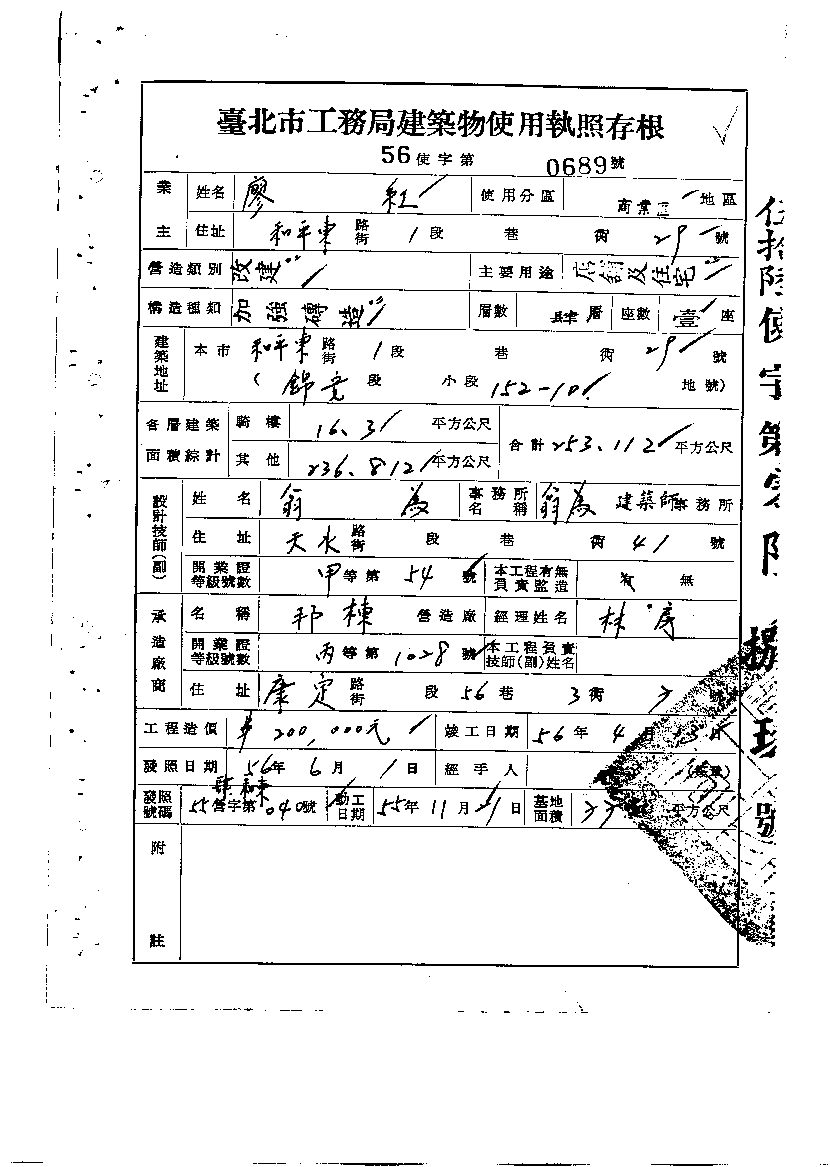 臺北市工務局建築物使用執照存根
56使字第 0689號
業主 姓名 廖 紅 使用分區 商業區 地區
住址 和平東 路街 1段 巷 衖 29 號
營造類別 改建 主要用途 店舖及住宅
構造種類 加強磚造 層數 肆層 座數 壹座
建築地址 本市 和平東 路街 1段 巷 衖 29 號
( 錦 段 小段 152-10 地號)
各層建築面積綜計 騎樓 16.3 平方公尺 合計 253.112 平方公尺
其他 236.812 平方公尺
設計技師(副) 姓名 翁 為 事務所名稱 翁為 建築師事務所
住址 天水 路街 段 巷 衖 41 號
開業證等級號數 甲等第 54 號 本工程有無負責監造 有 無
承造廠商 名稱 邦棟 營造廠 經理姓名 林 房
開業證等級號數 丙等第 1028 號 本工程負責技師(副)姓名
住址 康定 路街 段 56巷 3衖 號
工程造價 200,000元 竣工日期 56年 4月 13日
發照日期 56年 6月 1日 經手人
發照號碼 55營字第 040號 動工日期 55年 11月 21日 基地面積 平方公尺
附註
伍拾陸使字第零陸捌玖號